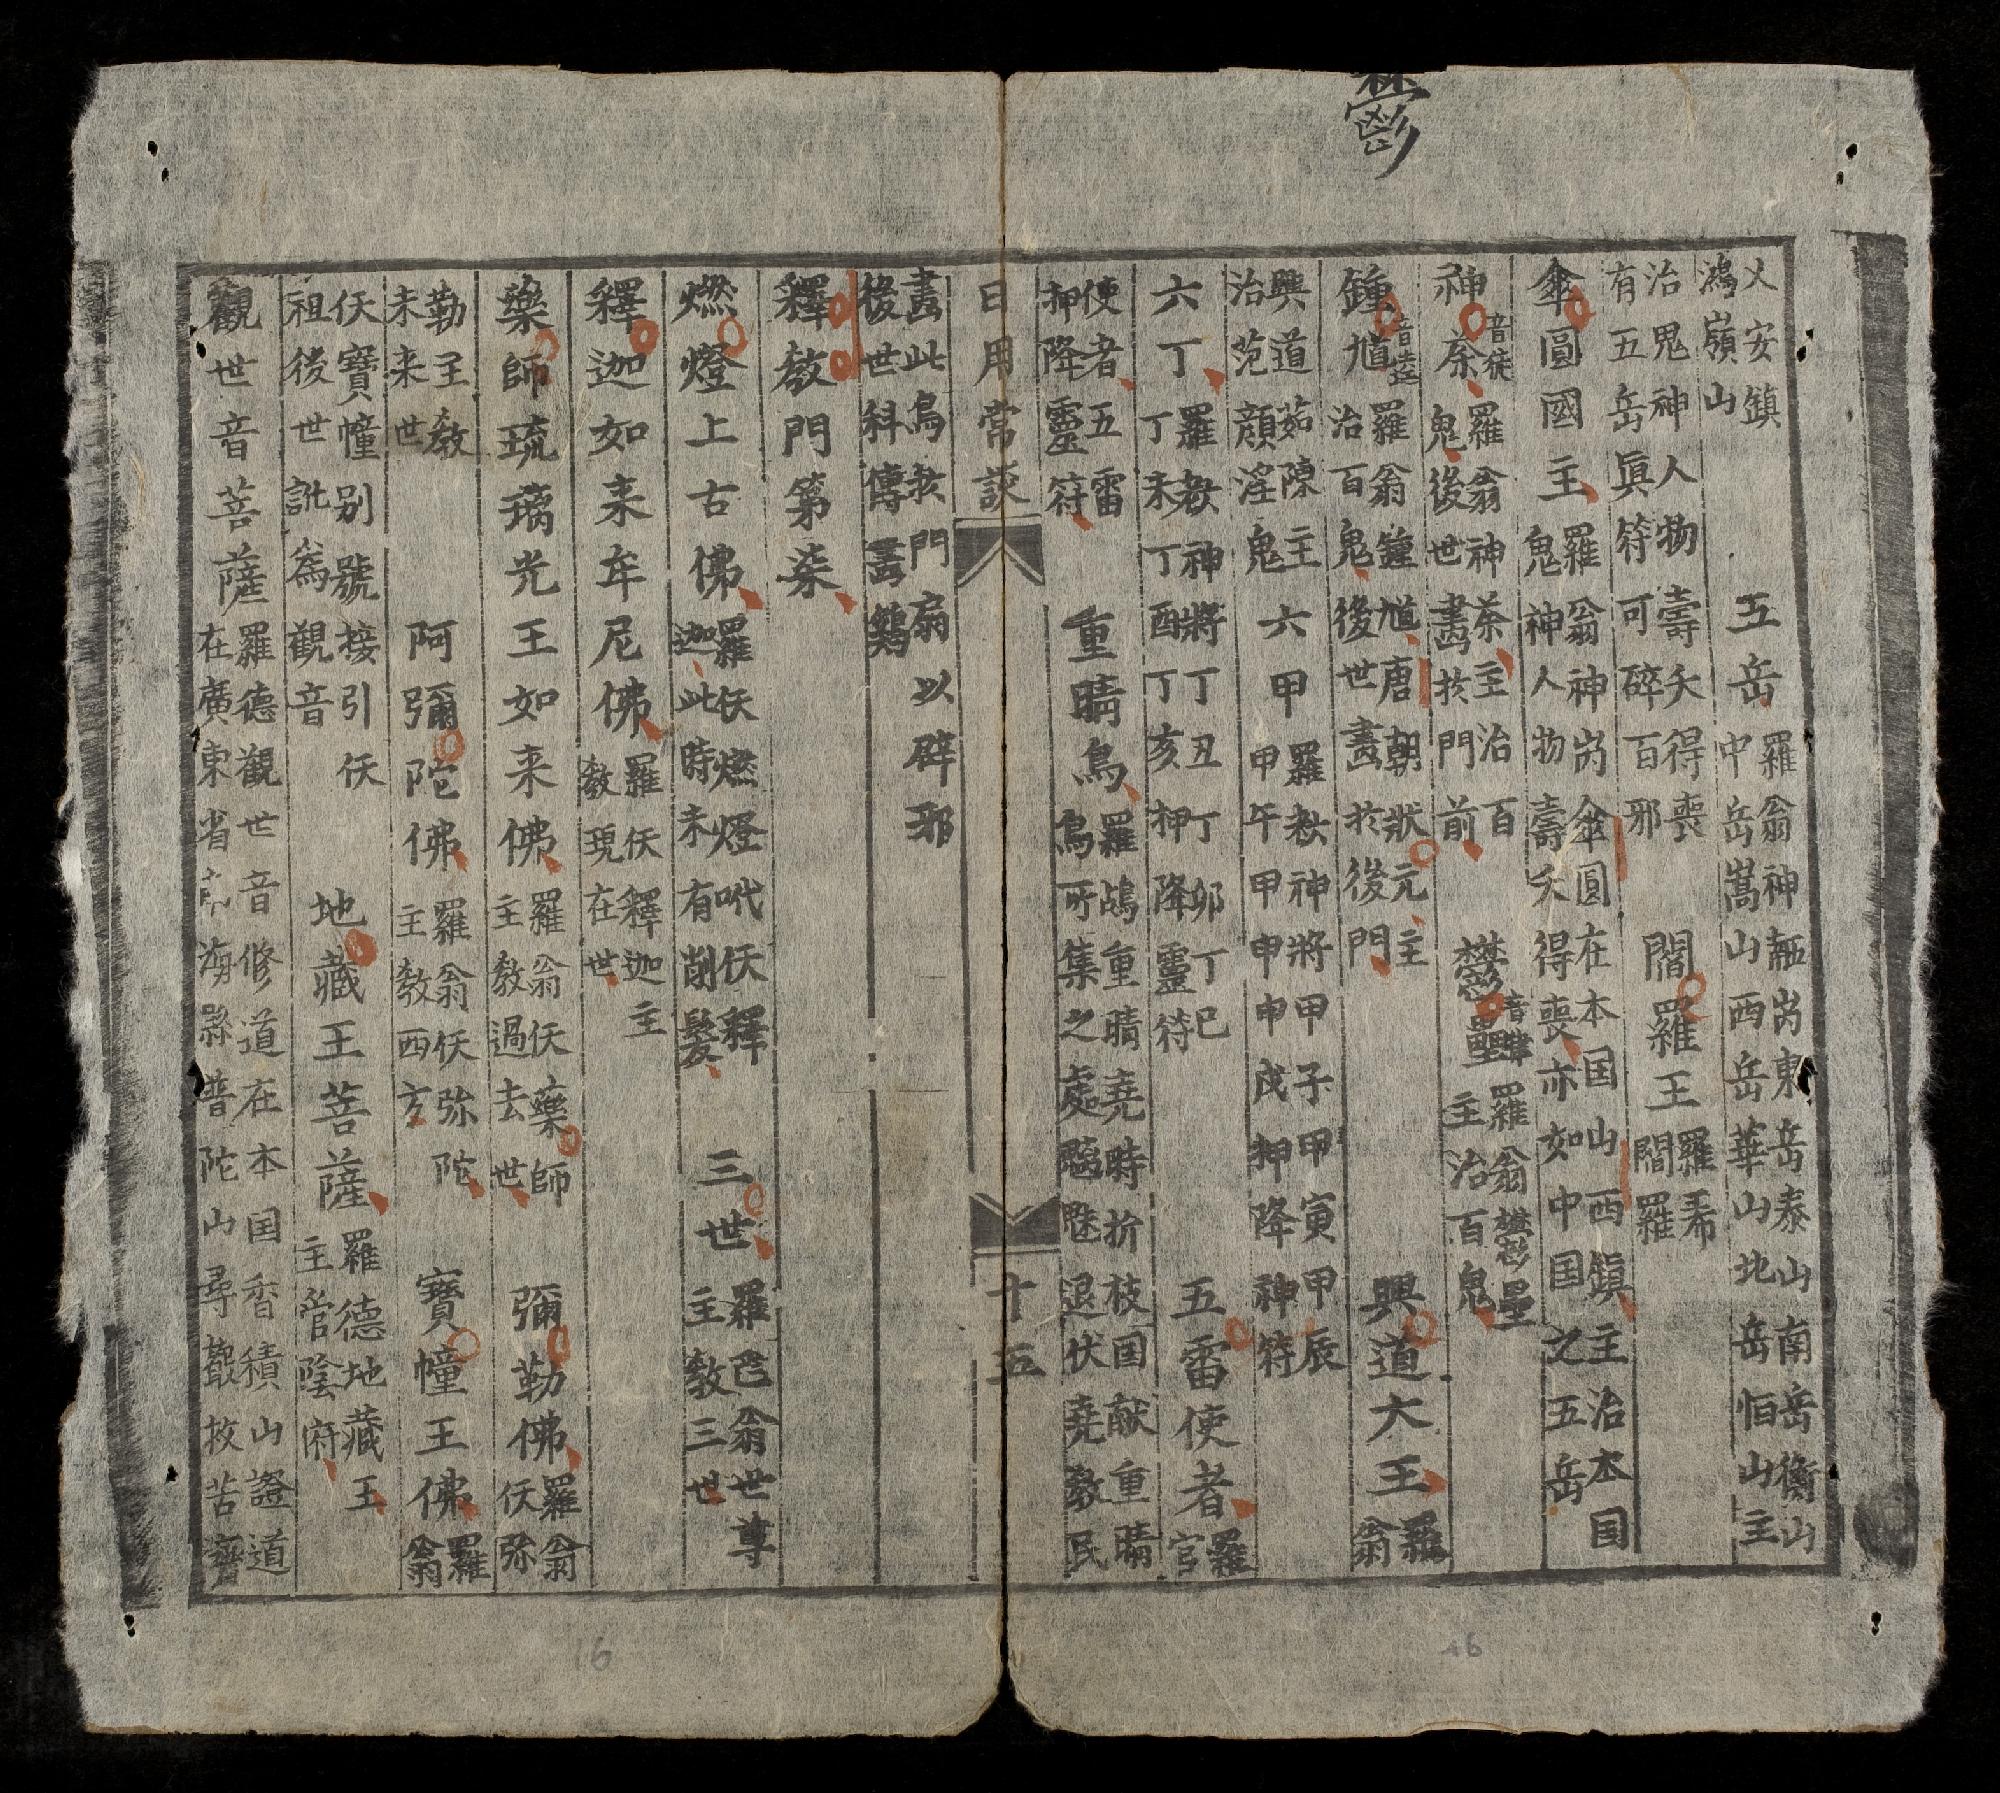 鬱
乂安鎮
鴻嶺山
五岳
羅翁神𥙩岗東岳泰山南岳衡山
中岳嵩山西岳華山北岳恒山主
治鬼神人物壽夭得喪
有五岳眞符可碎百邪
閻羅王
羅希
閻羅
傘圓國主
羅翁神岗傘圓在本国山西鎮主治本国
鬼神人物壽夭得喪亦如中国之五岳
神荼
音徒
羅翁神荼主治百
鬼後世畫於門前
欝壘
音律
羅翁欝壘
主治百鬼
鍾馗
音逵
羅翁鍾馗唐朝狀元主
治百鬼後世畫於後門
興道大王
羅
翁
興道茹陳主
治范顔淫鬼
六甲
羅叁神將甲子甲寅甲辰
甲午甲申甲戌押降神符
六丁
羅叁神將丁丑丁卯丁巳
丁未丁酉丁亥押降靈符
五雷使者
羅
官
使者五雷
押降靈符
重睛鳥
羅鴣重睛堯時折枝国献重睛
鳥所集之處魑魅退伏堯教民
日用常談
十五
畫此鳥於門扇以辟邪
後世科傳畫鷄
釋教門第柒
燃燈上古佛
羅仸燃燈呎仸釋
迦此時未有削髮
三世
羅𠀧翁世尊
主教三世
釋迦如来牟尼佛
羅仸釋迦主
教現在世
藥師琉璃光王如来佛
羅翁仸藥師
主教過去世
彌勒佛
羅翁
仸弥
勒主教
未来世
阿彌陀佛
羅翁仸弥陀
主教西方
寶幢王佛
羅
翁
仸寶幢别號接引仸
祖後世訛爲觀音
地藏王菩薩
羅德地藏王
主管陰府
觀世音菩薩
羅德觀世音修道在本国香積山證道
在廣東省南海縣普陀山尋聲救苦齊
16
16